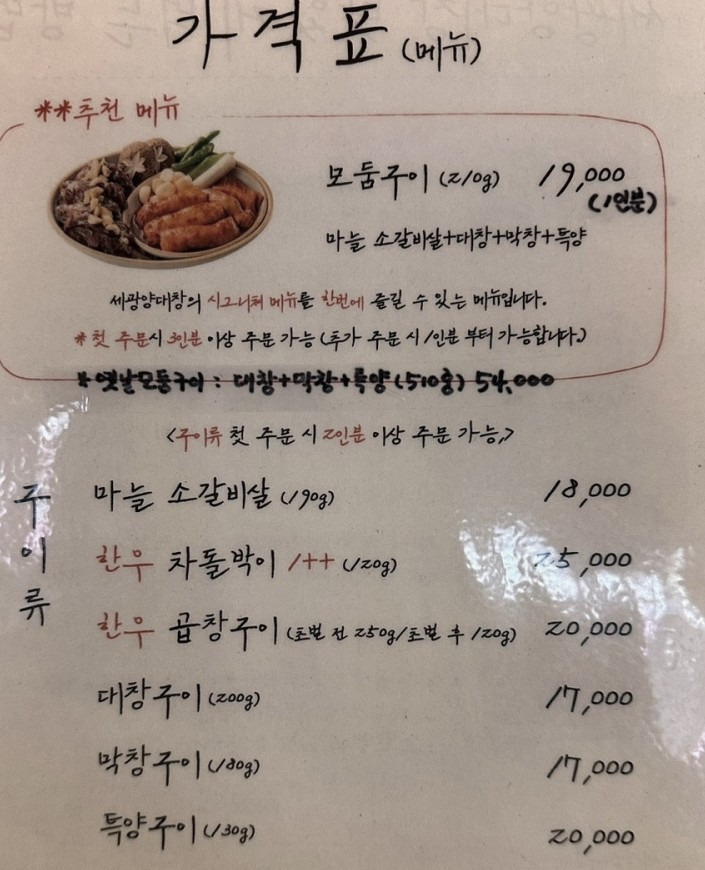 가격표 (메뉴)
**추천 메뉴
모둠구이 (210g) 19,000
(1인분)
마늘 소갈비살+대창+막창+특양
세광양대창의 시그니처 메뉴를 한번에 즐길 수 있는 메뉴입니다.
*첫 주문시 3인분 이상 주문 가능 (추가 주문 시 1인분 부터 가능합니다.)
*옛날모둠구이 : 대창+막창+특양 (510g) 54,000
<구이류 첫 주문 시 2인분 이상 주문 가능,>
구이류
마늘 소갈비살 (190g) 18,000
한우 차돌박이 1++ (120g) 25,000
한우 곱창구이 (초벌 전 250g/초벌 후 120g) 20,000
대창구이 (200g) 17,000
막창구이 (180g) 17,000
특양구이 (130g) 20,000